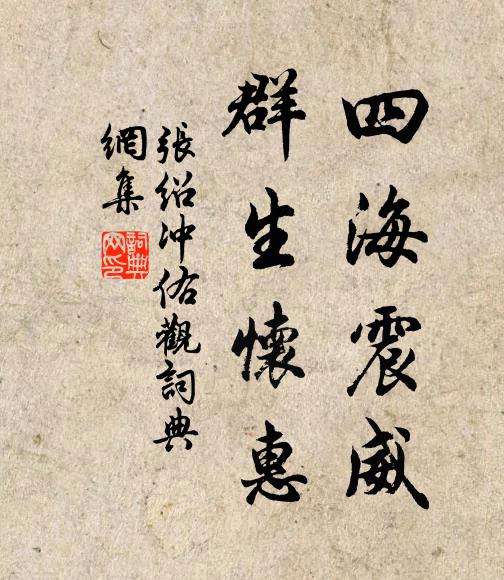 四海震威
群生懷惠
張紹沖佑觀詞典
網集
詞典
网印